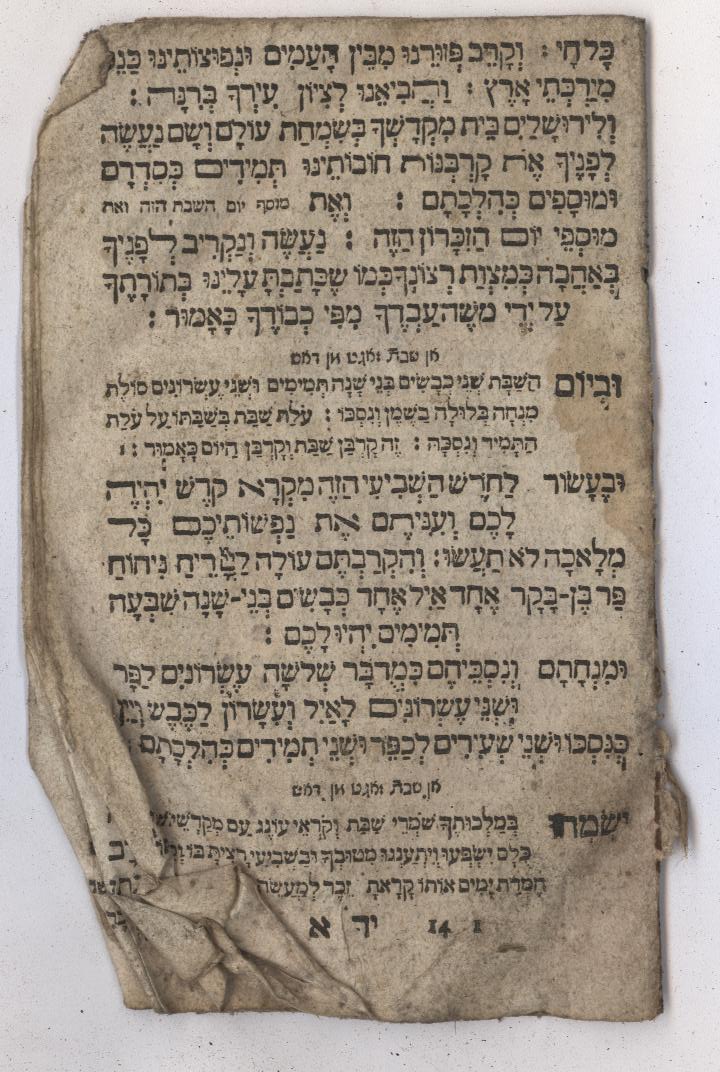 כָּל חָי : וְקָרֵב פְּזוּרֵנוּ מִבֵּין הָעַמִּים וּנְפוּצוֹתֵינוּ כַּנֵּס
מִיַּרְכְּתֵי אָרֶץ : וַהֲבִיאֵנוּ לְצִיּוֹן עִירְךָ בְּרִנָּה :
וְלִירוּשָׁלַיִם בֵּית מִקְדָּשְׁךָ בְּשִׂמְחַת עוֹלָם וְשָׁם נַעֲשֶׂה
לְפָנֶיךָ אֶת קָרְבְּנוֹת חוֹבוֹתֵינוּ תְּמִידִים כְּסִדְרָם
וּמוּסָפִים כְּהִלְכָתָם : וְאֶת מוסף יום השבת הזה ואת
מוּסְפֵי יוֹם הַזִּכָּרוֹן הַזֶּה : נַעֲשֶׂה וְנַקְרִיב לְפָנֶיךָ
בְּאַהֲבָה כְּמִצְוַת רְצוֹנְךָ כְּמוֹ שֶׁכָּתַבְתָּ עָלֵינוּ בְּתוֹרָתֶךָ
עַל יְדֵי מֹשֶׁה עַבְדֶּךָ מִפִּי כְבוֹדֶךָ כָּאָמוּר :
אן שבת זאגט מן דאש
וּבְיוֹם הַשַּׁבָּת שְׁנֵי כְבָשִׂים בְּנֵי שָׁנָה תְּמִימִים וּשְׁנֵי עֶשְׂרוֹנִים סוֹלֶת
מִנְחָה בְּלוּלָה בַשֶּׁמֶן וְנִסְכּוֹ : עֹלַת שַׁבַּת בְּשַׁבַּתּוֹ עַל עֹלַת
הַתָּמִיד וְנִסְכָּהּ : זֶה קָרְבַּן שַׁבָּת וְקָרְבַּן הַיּוֹם כָּאָמוּר :
וּבֶעָשׂוֹר לַחֹדֶשׁ הַשְּׁבִיעִי הַזֶּה מִקְרָא קֹדֶשׁ יִהְיֶה
לָכֶם וְעִנִּיתֶם אֶת נַפְשׁוֹתֵיכֶם כָּל
מְלָאכָה לֹא תַעֲשׂוּ : וְהִקְרַבְתֶּם עוֹלָה לַיְיָ רֵיחַ נִיחוֹחַ
פַּר בֶּן-בָּקָר אֶחָד אַיִל אֶחָד כְּבָשִׂים בְּנֵי-שָׁנָה שִׁבְעָה
תְּמִימִים יִהְיוּ לָכֶם :
וּמִנְחָתָם וְנִסְכֵּיהֶם כִּמְדֻבָּר שְׁלֹשָׁה עֶשְׂרוֹנִים לַפָּר
וּשְׁנֵי עֶשְׂרוֹנִים לָאַיִל וְעִשָּׂרוֹן לַכֶּבֶשׂ וְיַיִן
כְּנִסְכּוֹ וּשְׁנֵי שְׂעִירִים לְכַפֵּר וּשְׁנֵי תְמִידִים כְּהִלְכָתָם :
אן שבת זאגט מן דאש
יִשְׂמְחוּ בְּמַלְכוּתְךָ שֹׁמְרֵי שַׁבָּת וְקֹרְאֵי עוֹנֶג עַם מְקַדְּשֵׁי
כֻּלָּם יִשְׂבְּעוּ וְיִתְעַנְּגוּ מִטּוּבֶךָ וּבַשְּׁבִיעִי רָצִיתָ בּוֹ
חֶמְדַּת יָמִים אוֹתוֹ קָרָאתָ זֵכֶר לְמַעֲשֵׂה
14 1 יד א